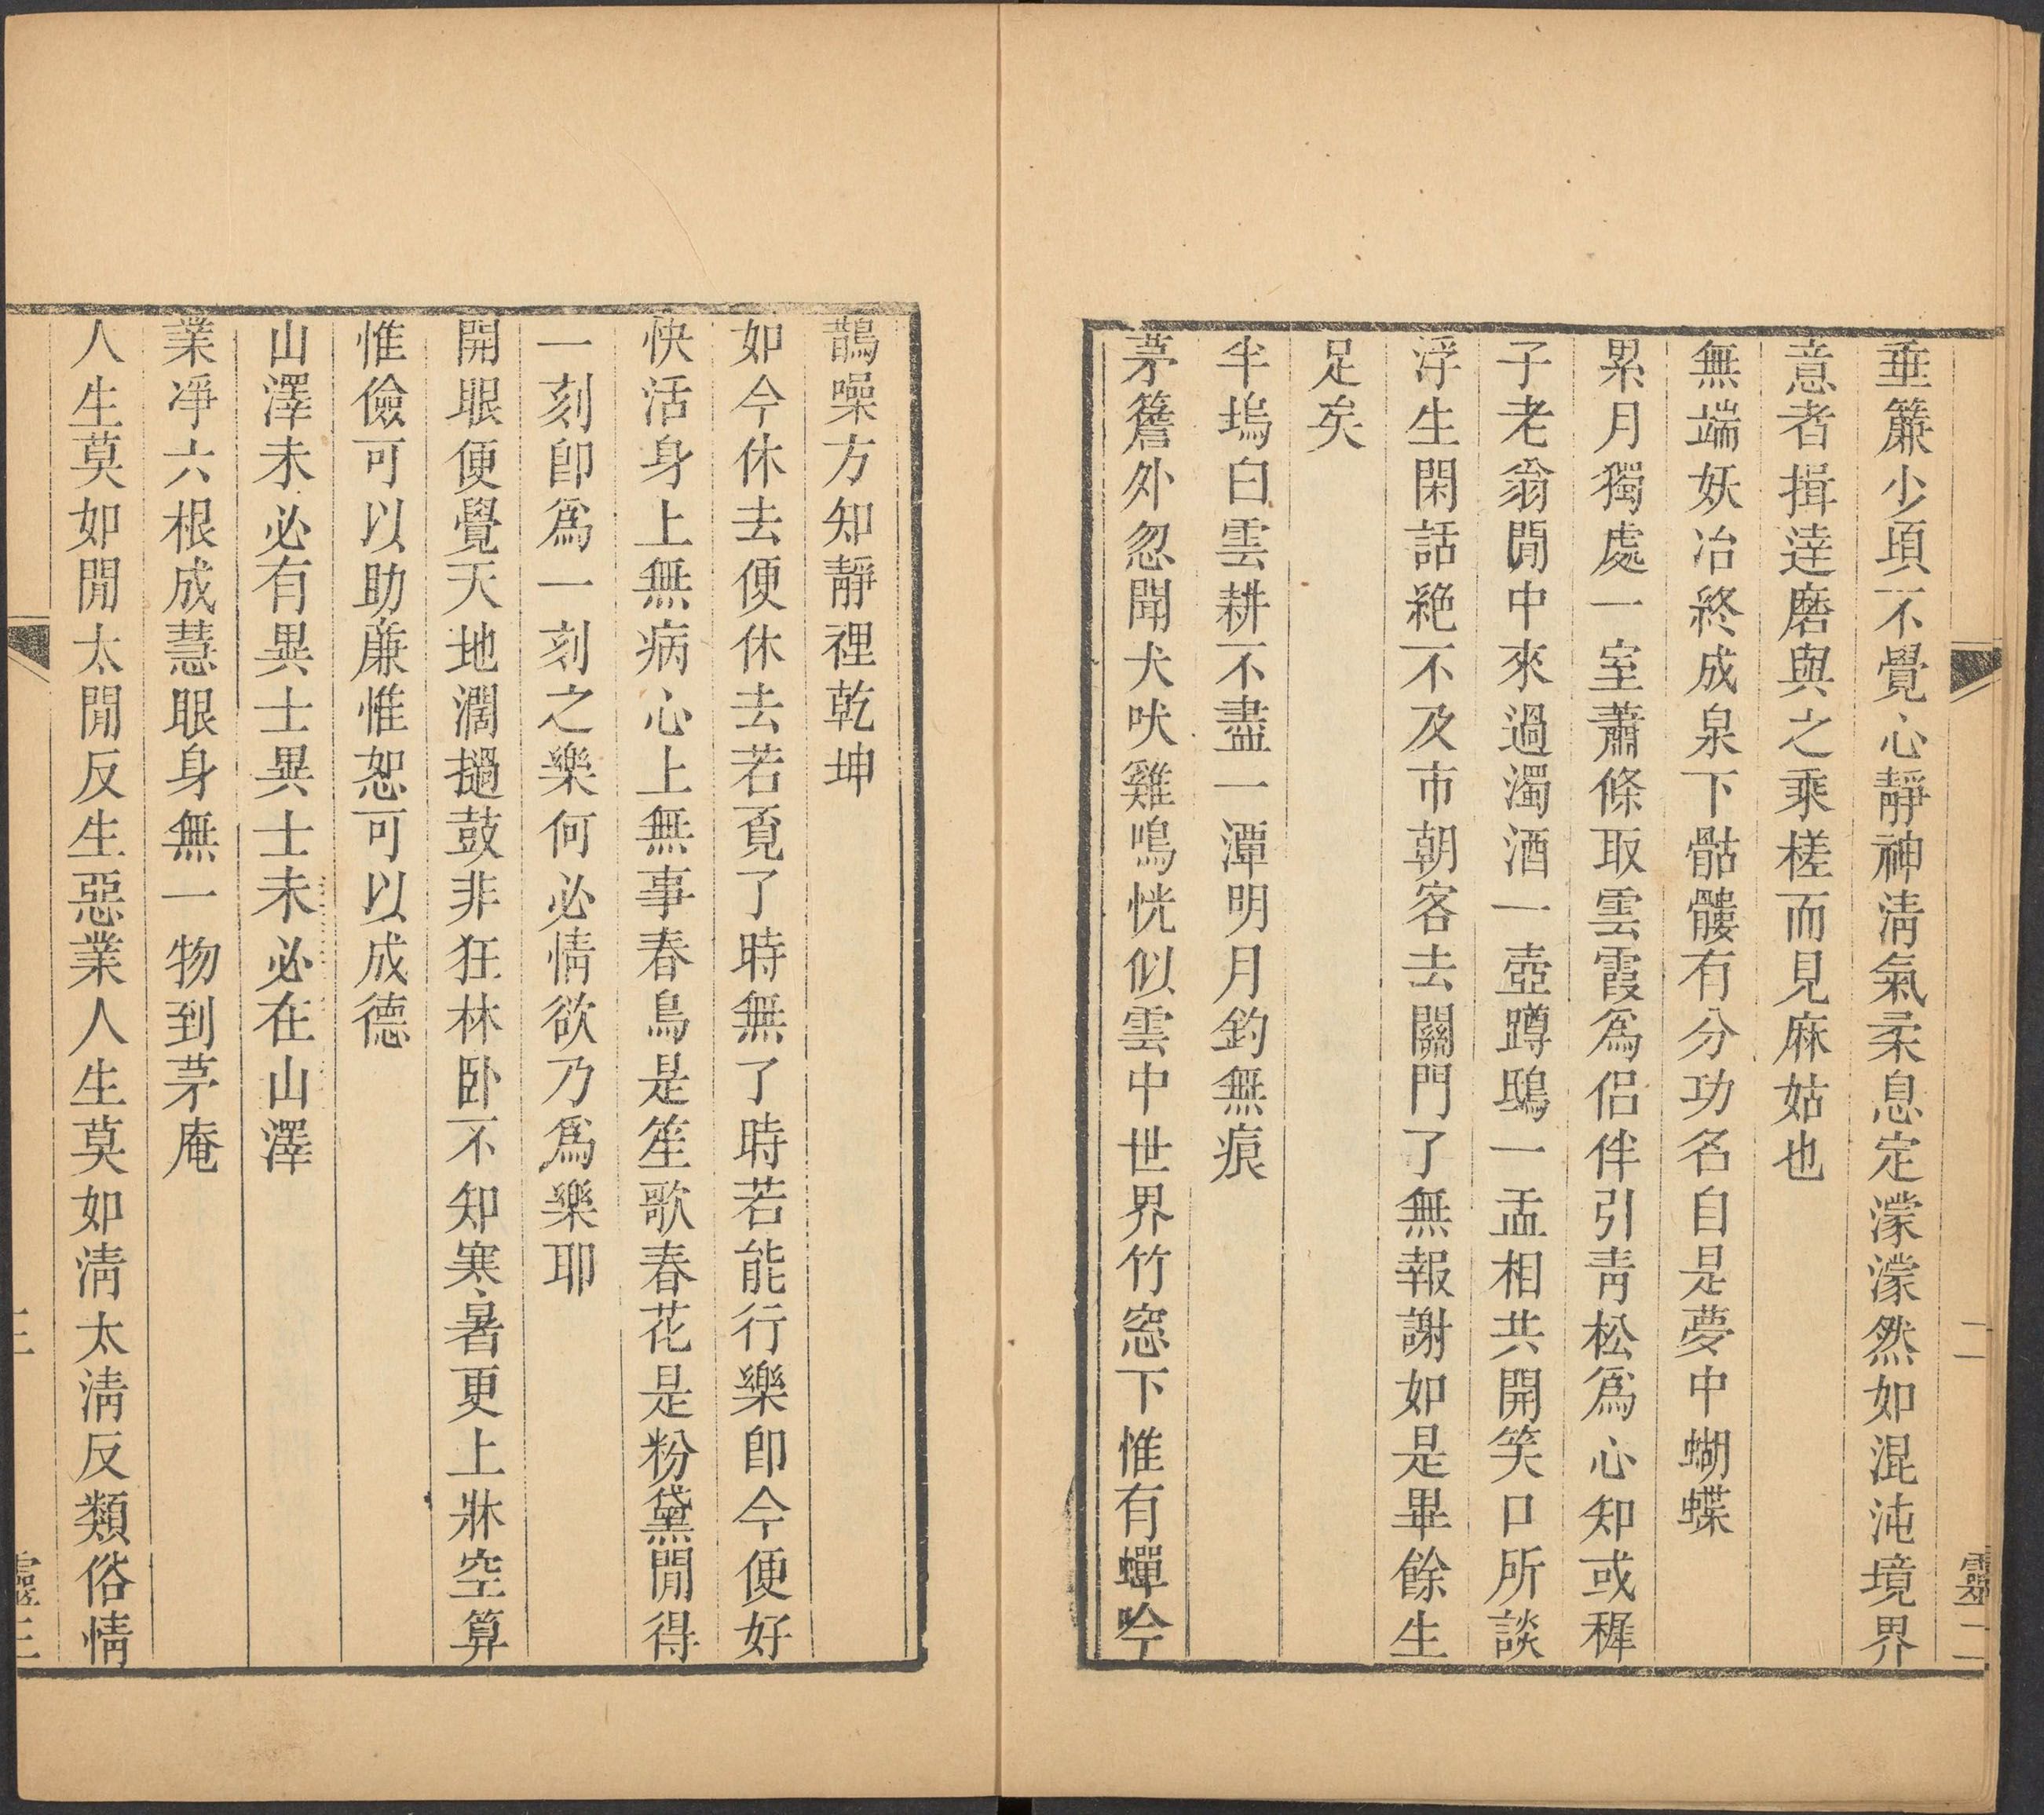 垂簾少頃不覺心靜神淸氣柔息定濛濛然如混沌境界
意者揖達磨與之乘槎而見麻姑也
無端妖冶終成泉下骷髏有分功名自是夢中蝴蝶
累月獨處一室蕭條取雲霞爲侶伴引靑松爲心知或穉
子老翁閒中來過濁酒一壺蹲鴟一盂相共開笑口所談
浮生閑話絶不及市朝客去關門了無報謝如是畢餘生
足矣
半塢白雲耕不盡一潭明月釣無痕
茅簷外忽聞犬吠雞鳴恍似雲中世界竹窓下惟有蟬吟
二
靈二
鵲噪方知靜裡乾坤
如今休去便休去若覓了時無了時若能行樂卽今便好
快活身上無病心上無事春鳥是笙歌春花是粉黛閒得
一刻卽爲一刻之樂何必情欲乃爲樂耶
開眼便覺天地濶撾鼓非狂林卧不知寒暑更上牀空算
惟儉可以助廉惟恕可以成德
山澤未必有異士異士未必在山澤
業淨六根成慧眼身無一物到茅庵
人生莫如閒太閒反生惡業人生莫如淸太淸反類俗情
三
靈三